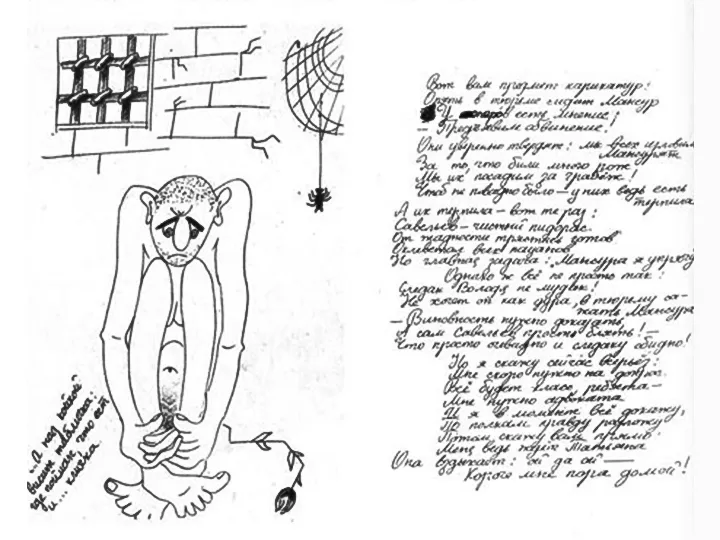 ...А над койкой
висит табличка:
где пойман, что ест
и ... кличка.
Вот вам предмет карикатур:
Опять в тюрьме сидит Мансур
И есть мнение:
— Предъявим обвинение!
Они уверенно твердят: мы всех изловим
Мансурят
За то, что били много рож
Мы их посадим за грабёж!
Чтоб не повадно было — у них ведь есть
терпила
А их терпила — вот те раз:
Савельев — чистый пидорас.
От жадности готов
всех пацанов
Но главная задача: Мансура я укрячу
Однако ж всё не просто так:
Следак Володя не мудак!
Не хочет он как дура, в тюрьму са-
жать Мансура
— Виновность нужно доказать,
А сам Савельев просто блять! —
Что просто очевидно и следаку обидно!
Но я скажу сейчас всерьёз:
Мне скоро нужно на допрос.
Всё будет класс, ребята —
Мне нужно адвоката
И я в момент всё докажу,
По полкам правду разложу
Потом скажу вам прямо:
Меня ведь ждёт Татьяна
Она вздыхает: ой да ой —
Короче мне пора домой!